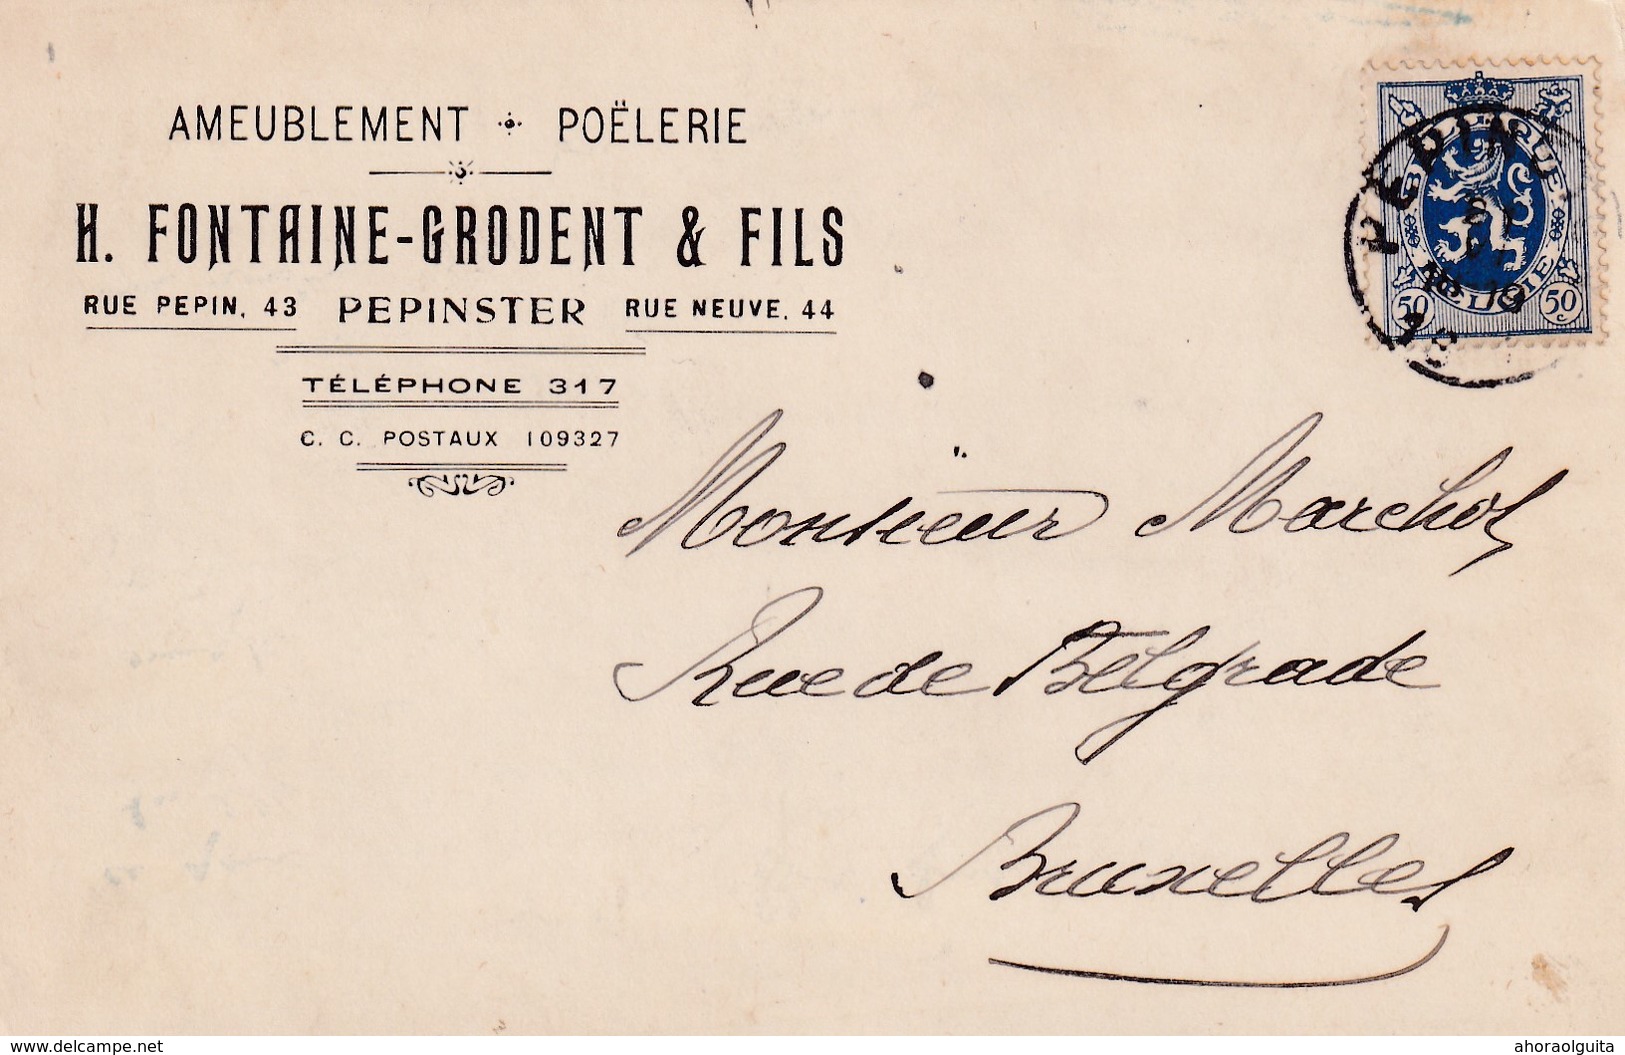 AMEUBLEMENT POËLERIE
H. FONTAINE-GRODENT & FILS
RUE PEPIN, 43 PEPINSTER RUE NEUVE, 44
TÉLÉPHONE 317
C. C. POSTAUX 109327
BELGIQUE
BELGIE
50 50c
Monsieur Marchot
Rue de Belgrade
Bruxelles
www.delcampe.net ahoraolguita